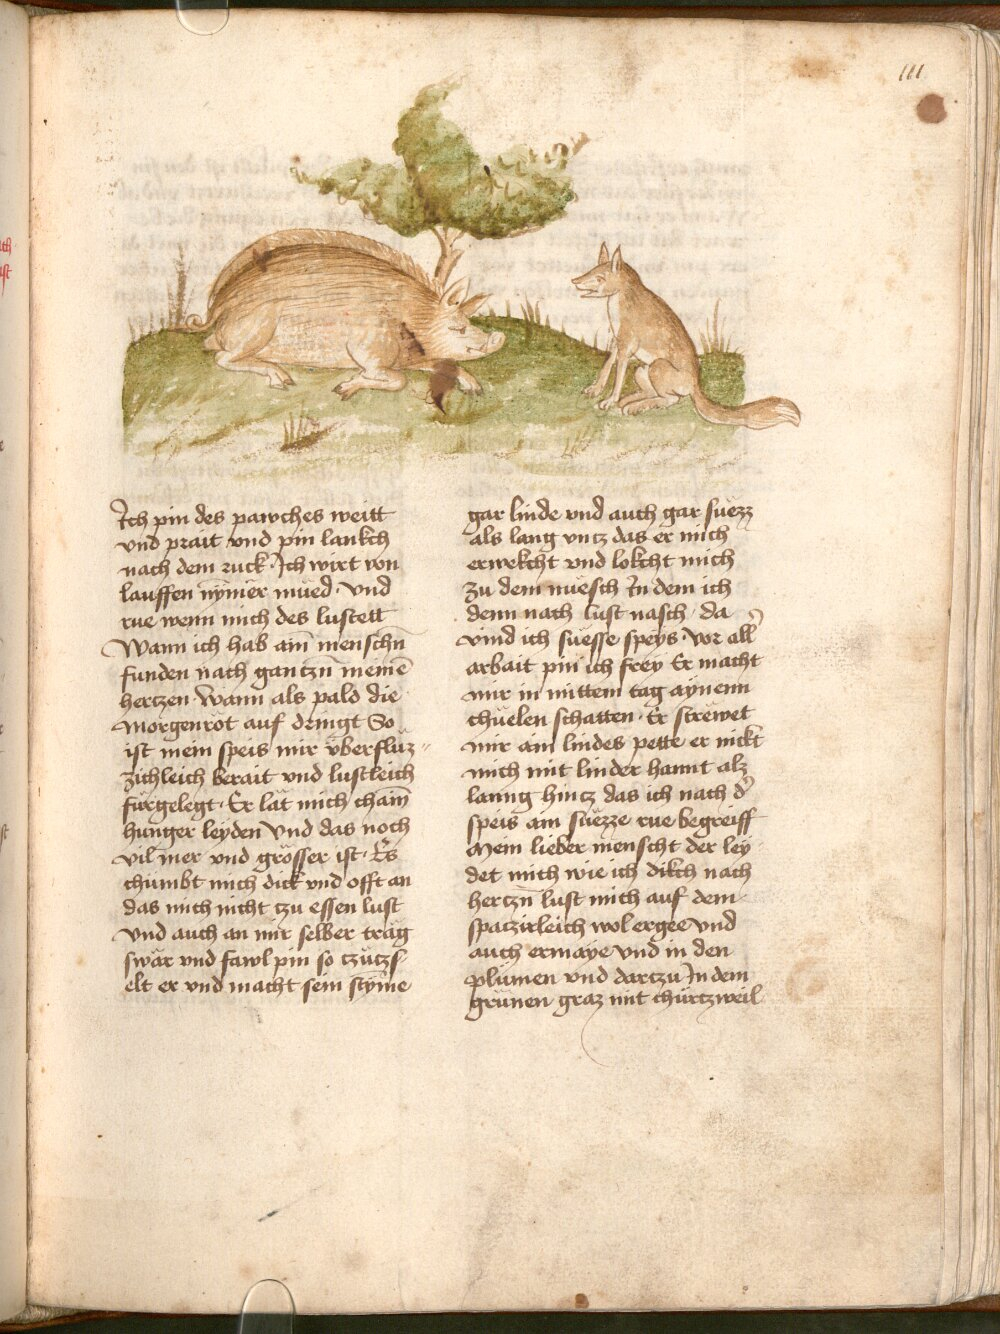 111
Ich pin des pawches weitt
vnd prait vnd pin lankch
nach dem ruck · Ich wirt von
lauffen nymer mued · vnd
rue wenn mich des lustett
Wann ich hab ain menschn̄
funden nach gantzn̄ meinē
hertzen · Wann als pald die
morgenröt auf dringt So
ist mein speis mir vberfluz=
zichleich berait vnd lustleich
fürgelegt · Er lät mich chain
hunger leyden Vnd das noch
vil mer vnd grösser ist · Es
chumbt mich dick vnd offt an
das mich nicht tzu essen lust
vnd auch an mir selber träg
swär vnd fawl pin so
elt er vnd macht sein stȳme
gar linde vnd auch gar suezz
als lang vntz das er mich
erwekcht vnd lokcht mich
zu dem muesch In dem ich
denn nach lust nasch · da
vind ich suesse speys · vor all
arbait pin ich frey Er macht
mir in mittem tag aynenn
chuelen schatten · Er strewet
mir ain lindes pette er nickt
mich mit linder hannt alz
lanng hintz das ich nach d'
speis am suezze rue begreiff
Mein lieber menscht der ley
det mich wie ich dikch nach
hertzn̄ lust mich auf dem
spatzirleich wol ergee vnd
auch ermaye vnd in den
plumen vnd dartzu In dem
grünen graz mit churtzweil